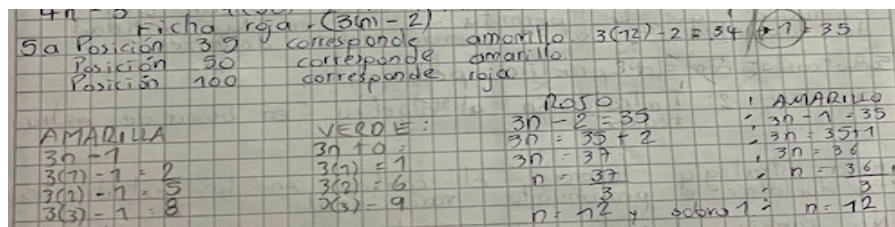 4n - 5
Ficha roja - (3(n) - 2)
5a Posición 35 corresponde amarillo 3(12) - 2 = 34 + 1 = 35
Posición 50 corresponde amarillo
Posición 100 corresponde roja
AMARILLA
3n - 1
3(1) - 1 = 2
3(2) - 1 = 5
3(3) - 1 = 8
VERDE:
3n + 0 =
3(1) = 1
3(2) = 6
3(3) - 9
ROJO
3n - 2 = 35
3n = 35 + 2
3n = 37
n = 37
3
n = 12 y sobro 1
AMARILLO
3n - 1 = 35
3n = 35+1
3n = 36
n = 36
3
n = 12